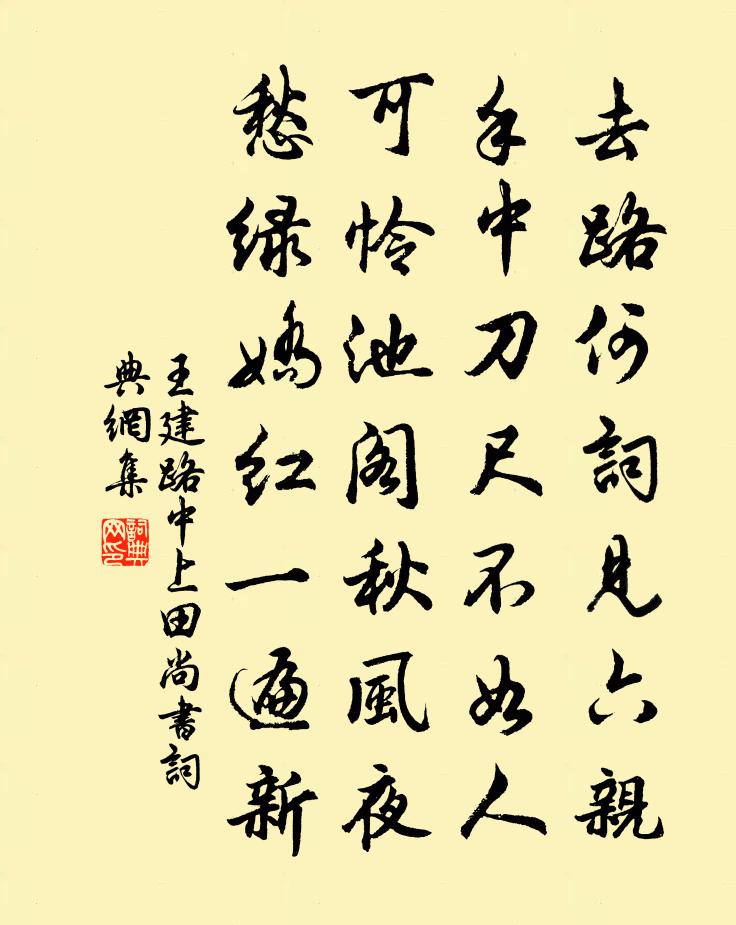 去路何詞見六親
手中刀尺不如人
可怜池阁秋風夜
愁绿嬌红一遍新
王建路中上田尚書詞
典網集
詞典网印